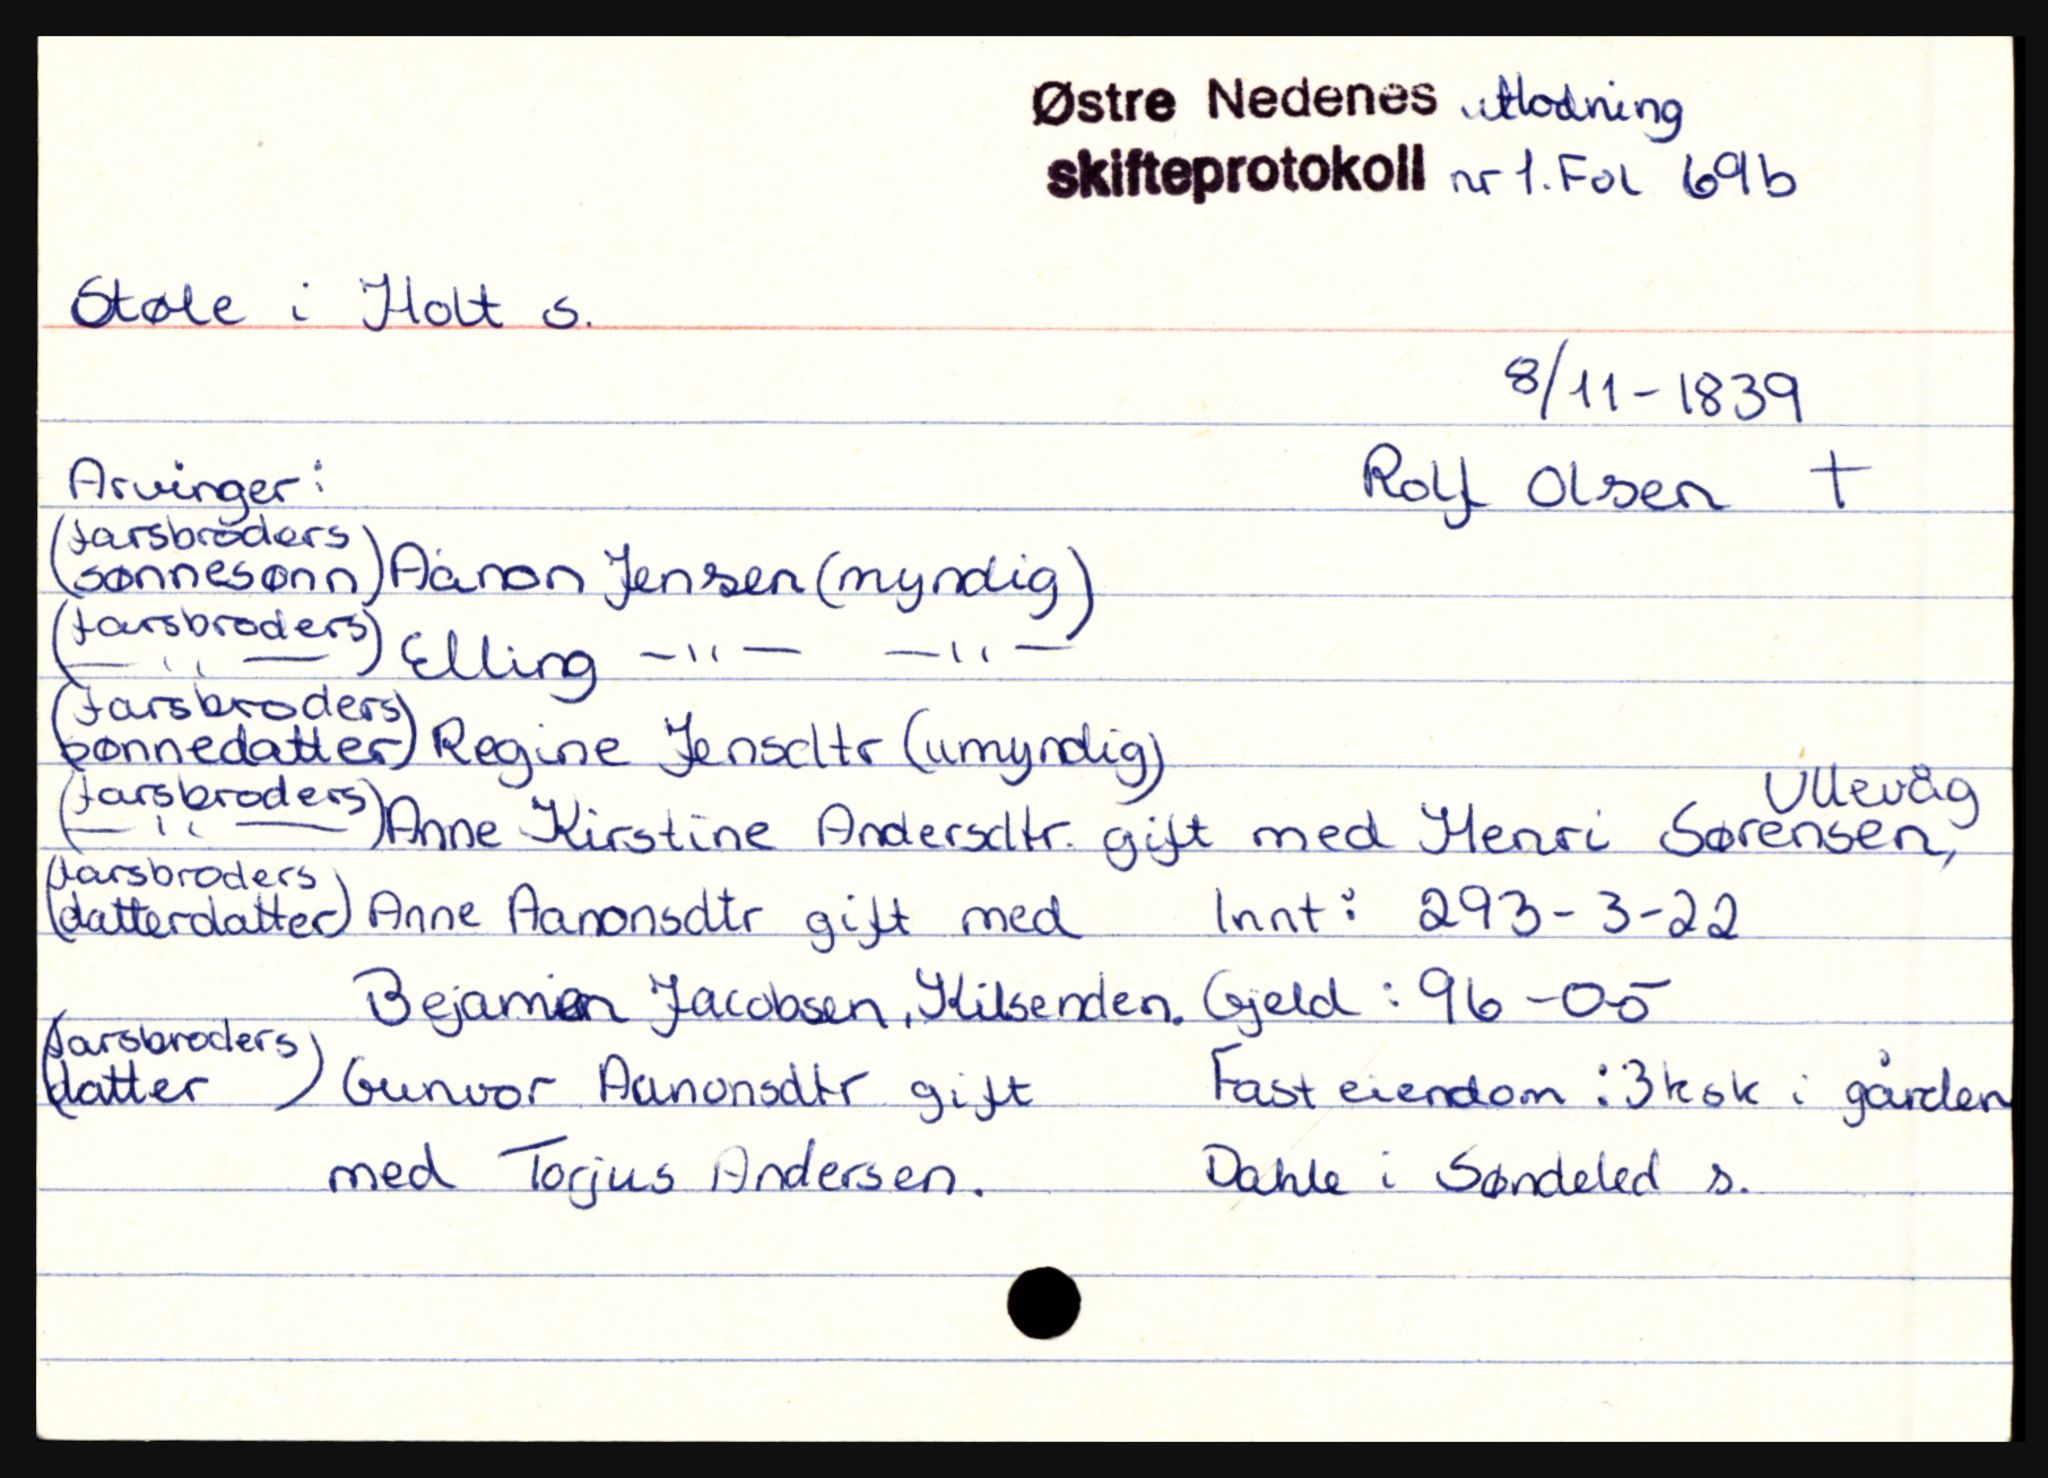 Østre Nedenes utlodning
skifteprotokoll nr 1. Fol 69b
Støle i Holt s.
8/11-1839
Arvinger: Rolf Olsen †
(farsbroders sønnesønn) Aanon Jensen (myndig)
(farsbroders —"—) Elling —"— —"—
(farsbroders sønnedatter) Regine Jensdtr (umyndig)
Ullevåg
(farsbroders —"—) Anne Kirstine Andersdtr. gift med Henri Sørensen,
(farsbroders datterdatter) Anne Aanonsdtr gift med Innt: 293-3-22
Bejamin Jacobsen, Kilsenden. Gjeld: 96-0-5
(farsbroders datter) Gunvor Aanonsdtr gift Fast eiendom: 3 k sk i gården
med Torjus Andersen. Dahle i Søndeled s.